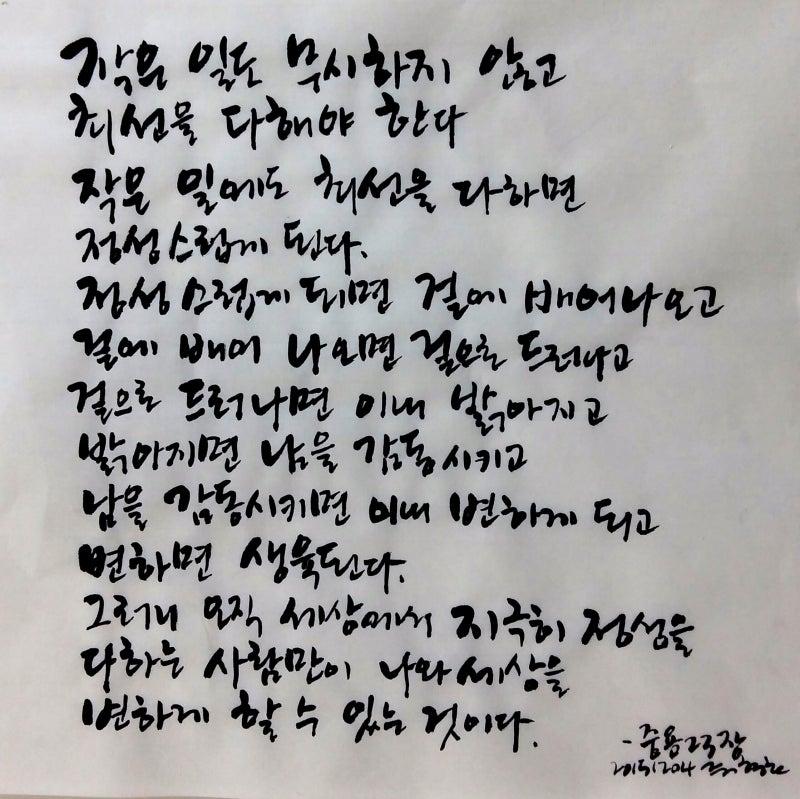 작은 일도 무시하지 않고
최선을 다해야 한다
작은 일에도 최선을 다하면
정성스럽게 된다.
정성스럽게 되면 겉에 배어나오고
겉에 배어 나오면 겉으로 드러나고
겉으로 드러나면 이내 밝아지고
밝아지면 남을 감동시키고
남을 감동시키면 이내 변하게 되고
변하면 생육된다.
그러니 오직 세상에서 지극히 정성을
다하는 사람만이 나와 세상을
변하게 할 수 있는 것이다.
- 중용23장
20151204